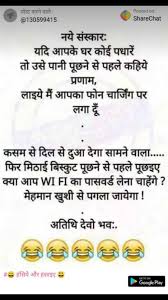 @130599415
ShareChat
नये संस्कार:
यदि आपके घर कोई पधारें
तो उसे पानी पूछने से पहले कहिये
प्रणाम,
लाइये मैं आपका फोन चार्जिंग पर
लगा दूँ
कसम से दिल से दुआ देगा सामने वाला.....
फिर मिठाई बिस्कुट पूछने से पहले पूछइए
क्या आप WI FI का पासवर्ड लेना चाहेंगे ?
मेहमान खुशी से पगला जायेगा !
अतिथि देवो भव:.
😂😂😂😂😂
# 😂 हंसिये और हसाइए 😂
Google Play